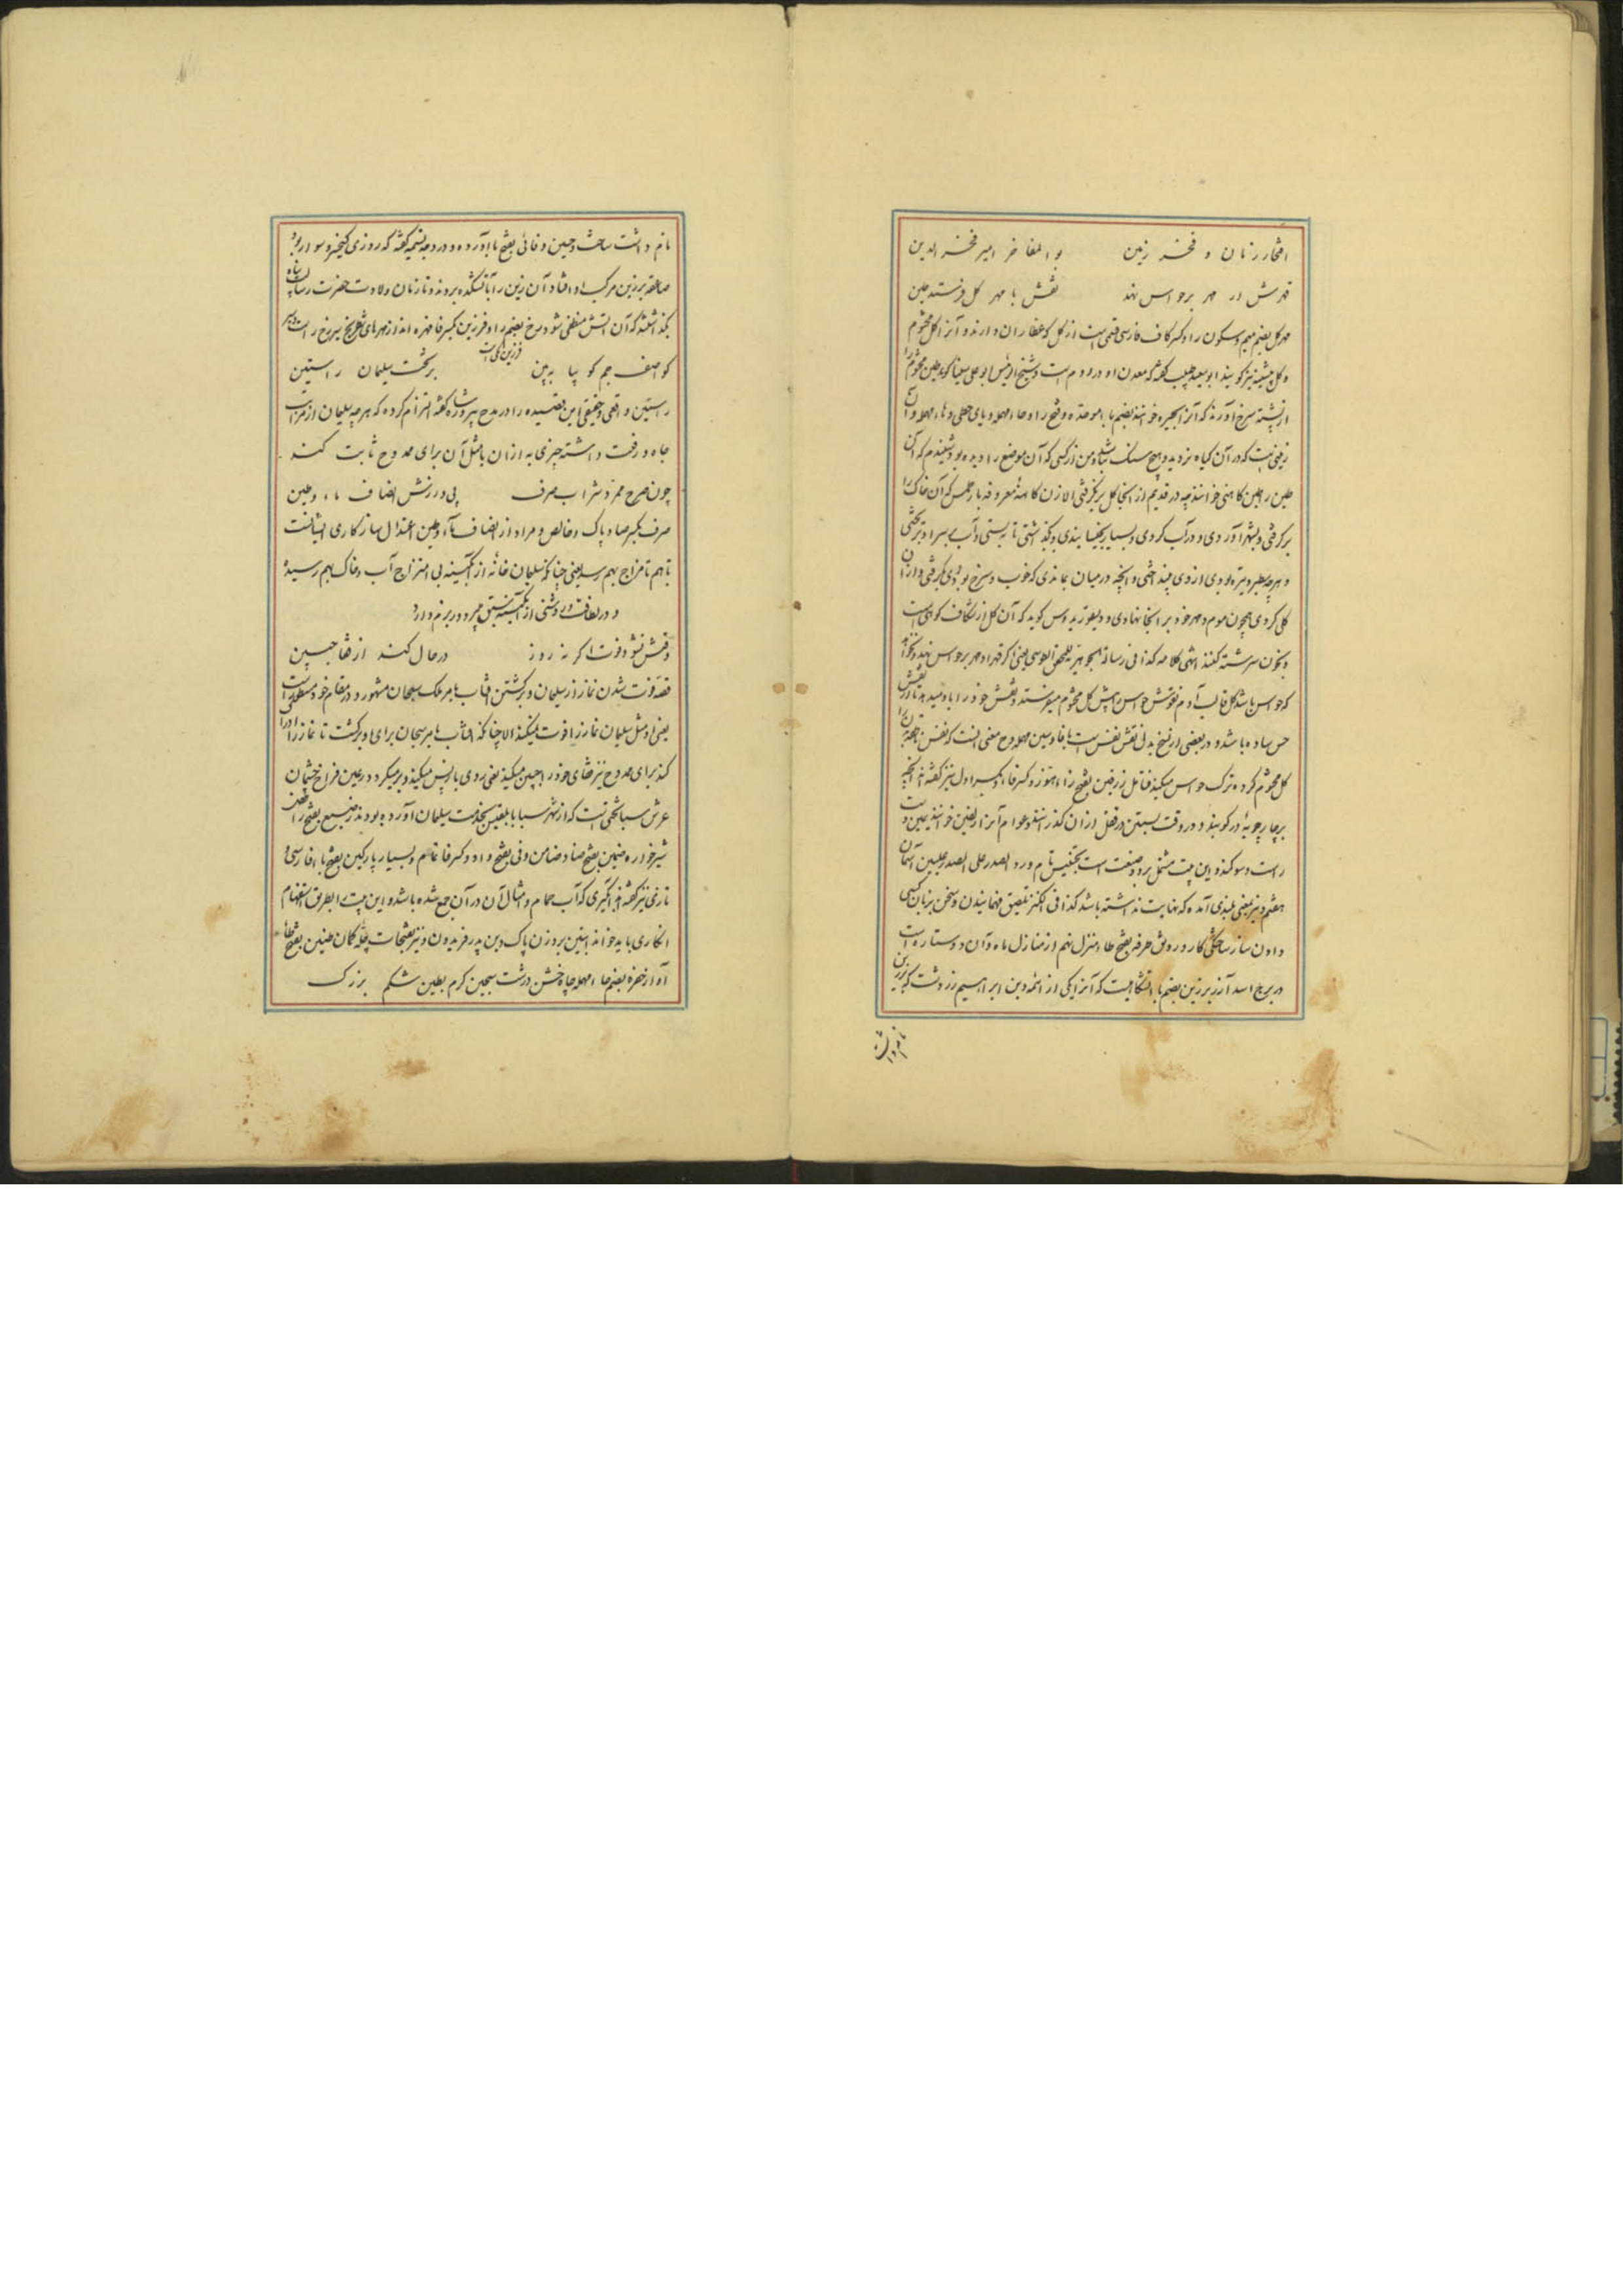 افتخار زمان و فخر زمین بو المفاخر امیر فخر الدین
قهرش ار مهر بر حواس نهد نقش با مهر کل فرستد طین
مهر کل بضم میم و سکون را و کسر کاف فارسی قسمی است از کل که عطاران دارند و آنرا کل مختوم
و کل نیز کویند ابو سعید طبیب کفته که معدن او در روم است و شیخ الرئیس ابو علی سینا کوید طین مختوم را
از پشته سرخ آورند که آنرا بحیره خوانند بضم با موحده و فتح را و حاء مهمله و یای حطی و هاء مهمله و آن
زمینی است که در آن کیاه نروید و هیچ سنک نباشد و من از کسی که آن موضع را دیده بود شنیدم که آن
طین را طین کاهنی خوانند چه در قدیم از آنجا کل بر نکرفتی الا زن کاهنه معروفه بارطمس که آن خاک را
بر کرفتی و بشهر آوردی و در آب کردی و بسیار بجنبانیدی و بگذاشتی تا به نشستی و آب بر سر او بریختی
و هر چه سطبر و تیره بودی از وی بینداختی و آنچه در میان بماندی که خوب و سرخ بودی بگرفتی و از آن
کلی کردی همچون موم و مهر خود بر آنجا نهادی و دیسقوریدوس کوید که آن کل از شکاف کوهی است
و بخون سرشته کنند انتهی کلامه کذا فی رسالة الجواهر یعنی اکر قهر او مهر بر حواس نهد و نخواهد
که حواس باشد کل قالب آدم نقوش حواس را پیش کل مختوم میفرستد و نقش خود را باو میدهد تا از نقش
حس ساده باشد و در بعضی از نسخ بدل نقش نفس است بفا و سین مهمله و معنی آنست که نفس ناطقه
کل مختوم کرده ترک حواس میکند فتامل زرفین بضم زاء هوز و کسر فا و بکسر اول نیز کفته اند زنجیر
بر چارچوبه در کوبند و در وقت بستن در قفل از آن کذرانند و عوام آنرا زلفین خوانند یمین دست
راست و سوکند و این بیت مشتمل بر دو صنعت است تجنیس تام و رد الصدر علی الصدر علیین آسمان
هفتم و نیز بمعنی بلندی آمده که نهایت نداشته باشد کذا فی الکنز تلقین فهمانیدن و سخن بزبان کسی
دادن ساز ساختگی کار و رونق طرفه بفتح طاء منزل نهم از منازل ماه و آن دو ستاره است
در برج اسد آذر برزین بضم با آتشکاهیست که آنرا یکی از ائمه دین ابراهیم زردشت که برزین
نام داشت
نام داشت ساخت و چنین و فائی بفتح با آورده و در وجه تسمیه کفته که روزی کیخسرو سوار بود
صاعقه بر زین مرکب او افتاد آن زین را بآتشکده بردند و تا زمان ولادت حضرت رسالت پناه
نکذاشتند که آن آتش منطفی شود رخ بضم را و فرزین بکسر فا مهره اند از مهرهای شطرنج سیر رخ راست و سیر
فرزین کج است
کو آصف جم کو بیا به بین بر تخت سلیمان راستین
راستین واقعی و حقیقی این قصیده را در مدح پیروزشاه کفته التزام کرده که هر چه سلیمان از مراتب
جاه و رفعت داشته چیزی به از آن یا مثل آن برای ممدوح ثابت کند
چون صرح ممرد شراب صرف پی ورزش انصاف ماء و طین
صرف بکسر صاد پاک و خالص و مراد از انصاف ماء و طین اعتدال و سازکاری ایشانست
با هم تا مزاج بهم رسد یعنی چنانکه سلیمان خانه از آبگینه بی امتزاج آب و خاک بهم رسیده
و در لطافت و روشنی از آبگینه سبق میبرد و در بزم دارد
وقتش نشود فوت اکر نه روز در حال کند از قفا جبین
قصه فوت شدن نماز از سلیمان و برکشتن آفتاب بامر ملک سبحان مشهور و در مقام خود مسطور است
یعنی او مثل سلیمان نماز را فوت نمیکند و الا چنانکه آفتاب بامر سبحان برای او برکشت تا نماز را ادا
کند برای ممدوح نیز قفای خود را جبین میکند یعنی روی باز پس میکند و بر میکردد عین فراخ چشمان
عرش سبا تختی است که از شهر سبا با بلقیس بخدمت سلیمان آورده بودند رضیع بفتح را طفل
شیر خواره ضمین بفتح ضاد ضامن وفی بفتح واو و کسر فا تمام و بسیار پارکین بفتح باء فارسی و
تازی نیز کفته اند آبکیری که آب حمام و امثال آن در آن جمع شده باشد و این بیت را بطریق استفهام
انکاری باید خواند آبتین بر وزن پاک دین پدر فریدون و نیز بفتحات چله کمان طنین بفتح طاء
آواز حفره بضم حاء مهمله چاه خشن درشت سجین کرم بطین شکم بزرک